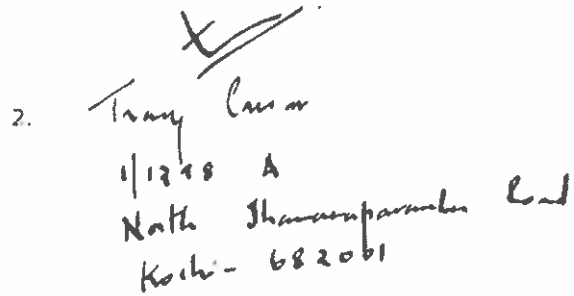 2. Tracy
1/1298 A
North Thamaraparambu Road
Kochi - 682001